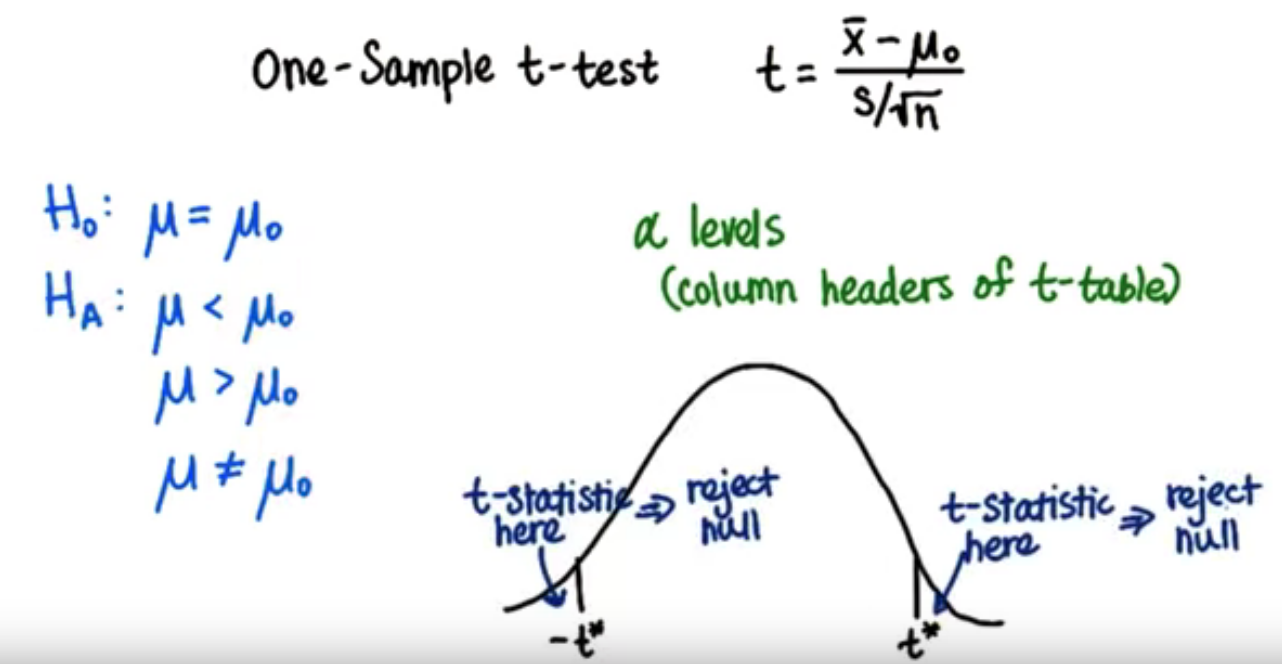 One-Sample t-test
t = x̄ - μ₀ / s/√n
H₀: μ = μ₀
H_A: μ < μ₀
μ > μ₀
μ ≠ μ₀
α levels
(column headers of t-table)
t-statistic ⇒ reject
here null
t-statistic ⇒ reject
here null
-t*
t*